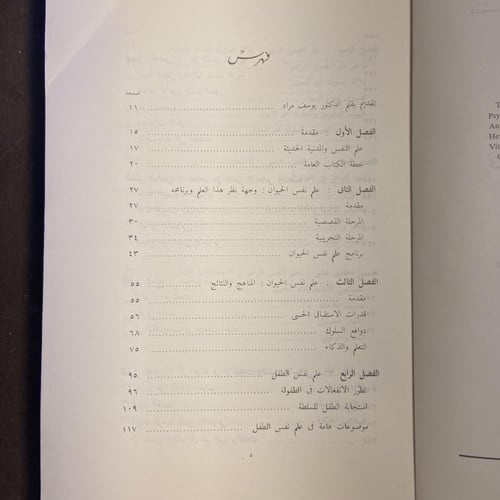 فهرس
صفحة
تقديم بقلم الدكتور يوسف مراد ١١
الفصل الأول : مقدمة ١٥
علم النفس والمدنية الحديثة ١٧
خطة الكتاب العامة ٢٠
الفصل الثانى : علم نفس الحيوان : وجهة نظر هذا العلم وبرنامجه ٢٧
مقدمة ٢٧
المرحلة القصصية ٣٠
المرحلة التجريبية ٣٤
برنامج علم نفس الحيوان ٤٣
الفصل الثالث : علم نفس الحيوان : المناهج والنتائج ٥٥
مقدمة ٥٥
قدرات الاستقبال الحسى ٥٦
دوافع السلوك ٦٨
التعلم والذكاء ٧٥
الفصل الرابع : علم نفس الطفل ٩٥
تطور الانفعالات فى الطفولة ٩٦
استجابة الطفل للسلطة ١٠٩
موضوعات هامة فى علم نفس الطفل ١١٧
٥